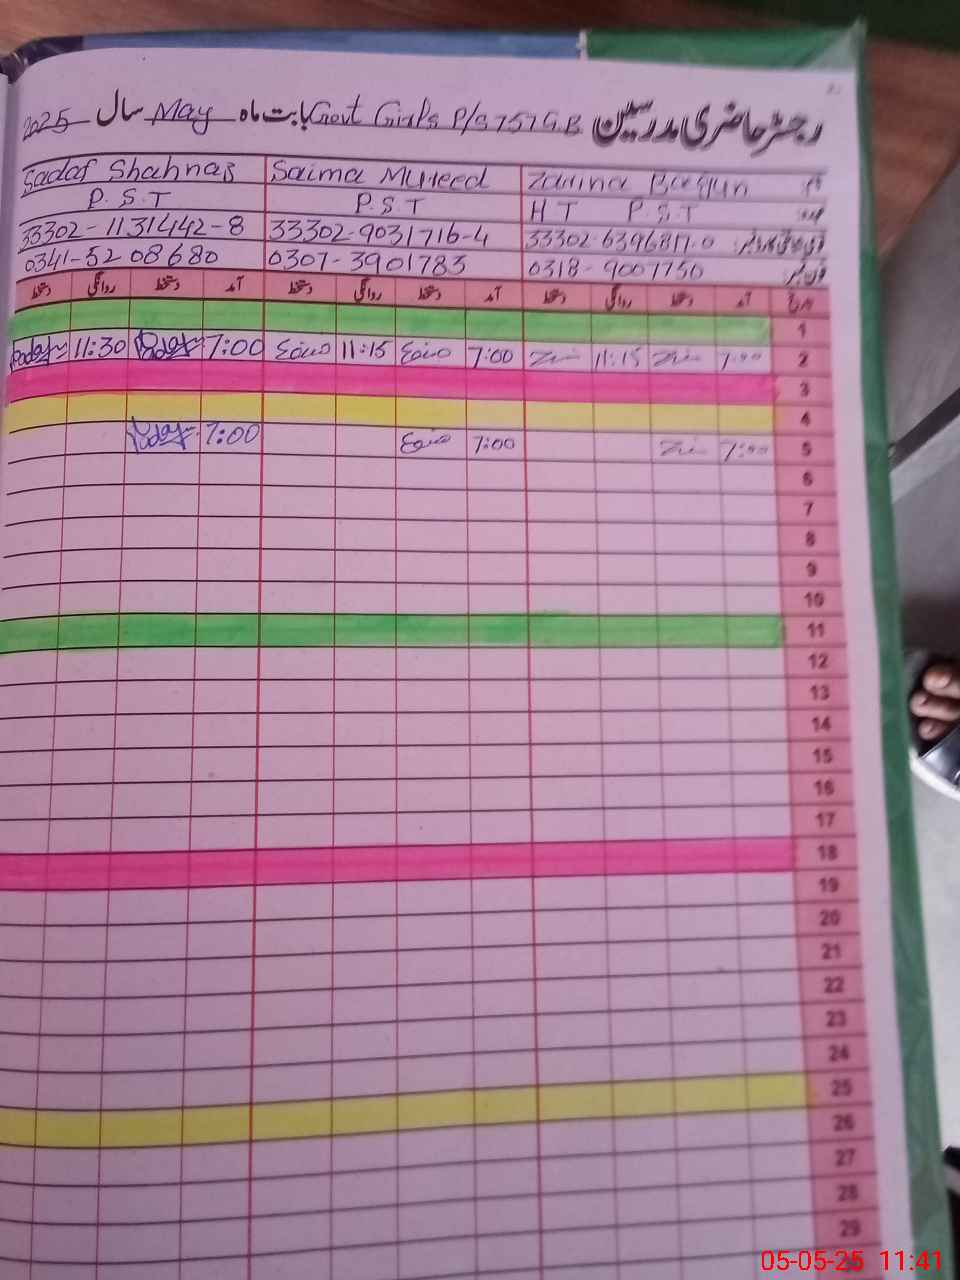 رجسٹر حاضری مدرسین Govt Girls P/S 757 GB بابت ماہ May سال 2025
نام Zarina Begum Saima Mureed Sadaf Shahnaz
عہدہ HT P.S.T P.S.T P.S.T
33302-6396817-0 33302-9031716-4 33302-1131442-8
فون نمبر 0318-9007750 0307-3901783 0341-5208680
تاریخ آمد دستخط روانگی دستخط آمد دستخط روانگی دستخط آمد دستخط روانگی دستخط
1
2 7:00 11:15 7:00 صائمہ 11:15 صائمہ 7:00 11:30
3
4
5 7:00 7:00 صائمہ 7:00
6
7
8
9
10
11
12
13
14
15
16
17
18
19
20
21
22
23
24
25
26
27
28
29
05-05-25 11:41